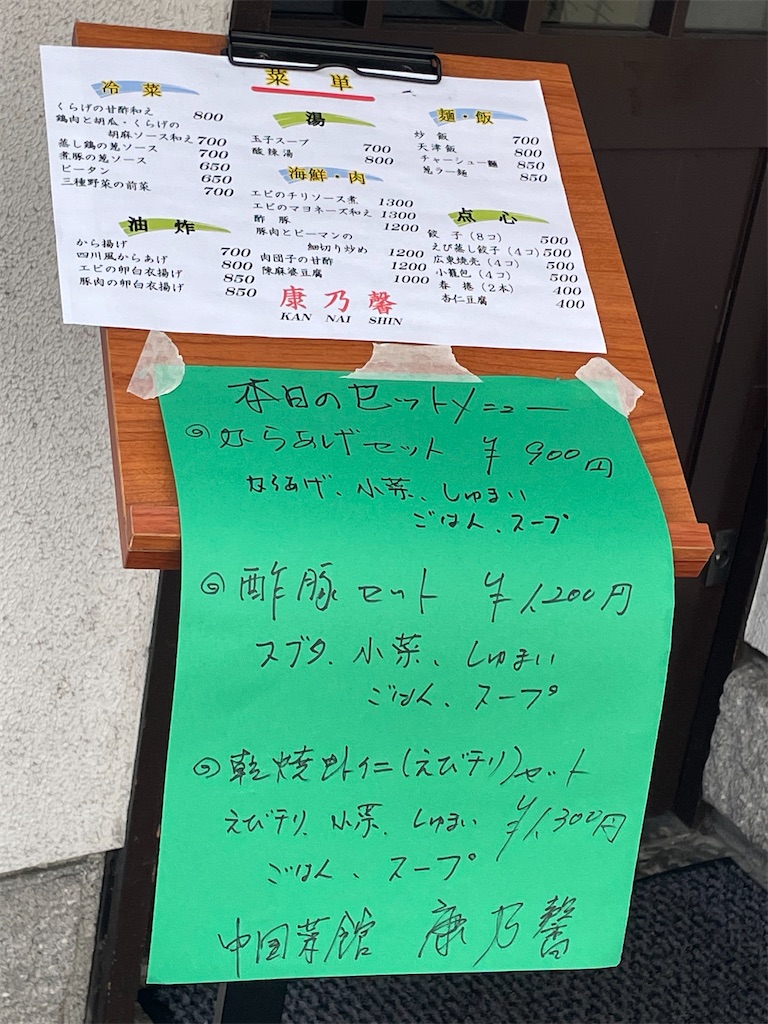 菜単
冷菜
くらげの甘酢和え 800
鶏肉と胡瓜・くらげの
胡麻ソース和え 700
蒸し鶏の葱ソース 700
煮豚の葱ソース 650
ピータン 650
三種野菜の前菜 700
油炸
から揚げ 700
四川風からあげ 800
エビの卵白衣揚げ 850
豚肉の卵白衣揚げ 850
湯
玉子スープ 700
酸辣湯 800
海鮮・肉
エビのチリソース煮 1300
エビのマヨネーズ和え 1300
酢豚 1200
豚肉とピーマンの
細切り炒め 1200
肉団子の甘酢 1200
陳麻婆豆腐 1000
麺・飯
炒飯 700
天津飯 800
チャーシュー麺 850
葱ラー麺 850
点心
餃子(8コ) 500
えび蒸し餃子(4コ) 500
広東焼売(4コ) 500
小籠包(4コ) 500
春捲(2本) 400
杏仁豆腐 400
康乃馨
KAN NAI SHIN
本日のセットメニュー
◎からあげセット ¥900円
からあげ、小菜、しゅまい
ごはん、スープ
◎酢豚セット ¥1,200円
スブタ、小菜、しゅまい
ごはん、スープ
◎乾焼蝦仁(えびチリ)セット
えびチリ、小菜、しゅまい ¥1,300円
ごはん、スープ
中国菜館 康乃馨